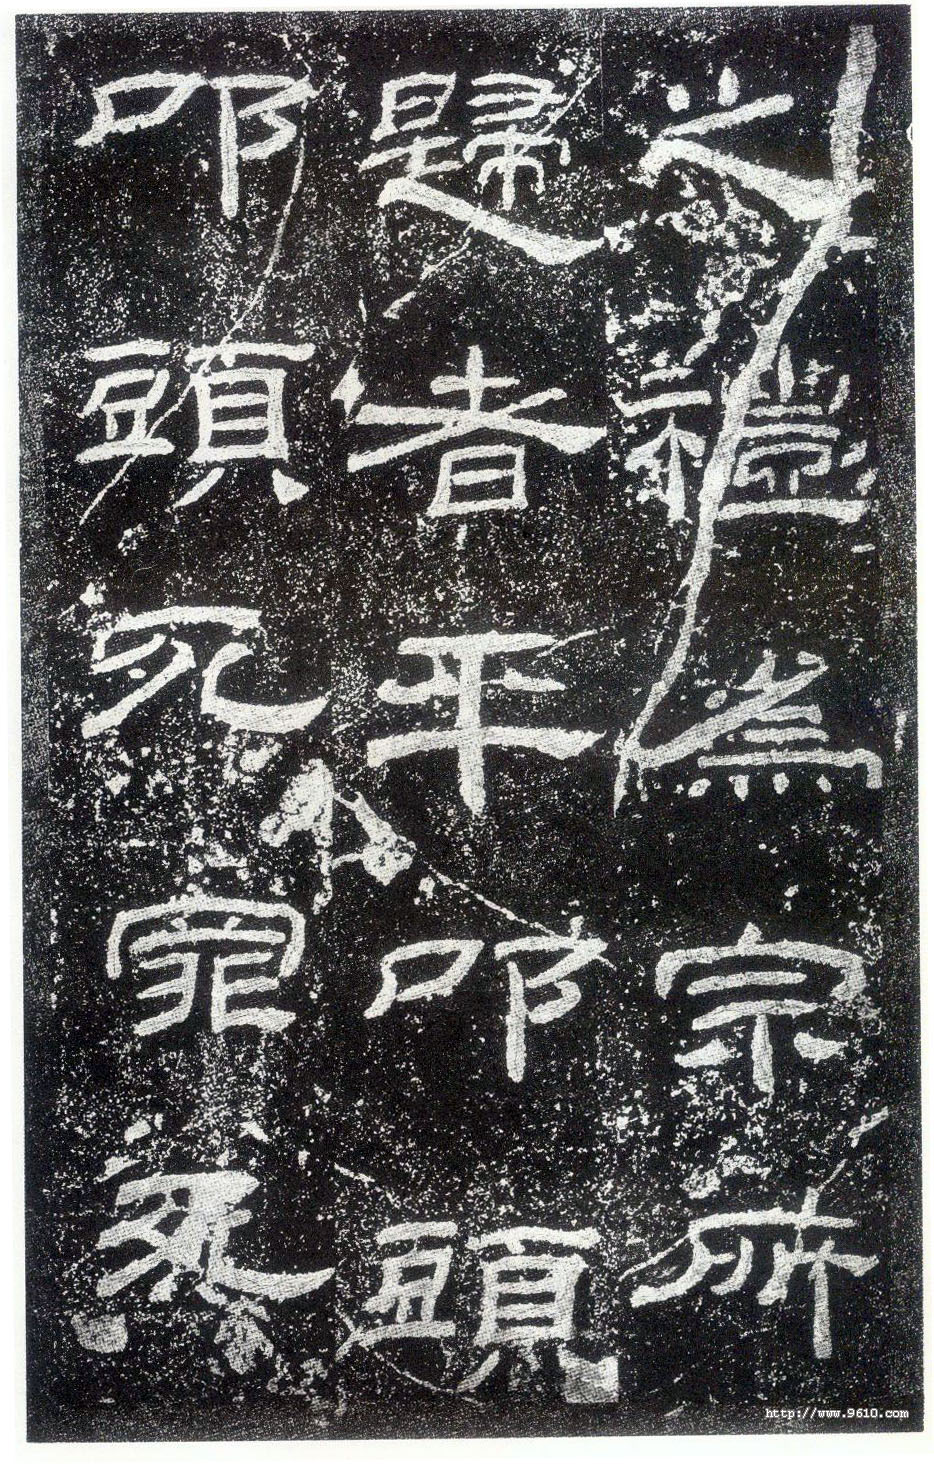 之禮為宗所
歸者平叩頭
叩頭死罪死
http://www.9610.com